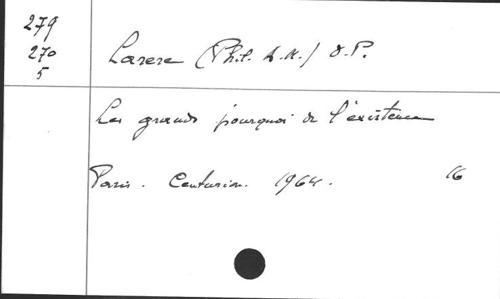 279
270
5
Larere (Phil. A.M.) O.P.
Les grands pourquoi de l'existence
Paris. Centurion. 1964.
16